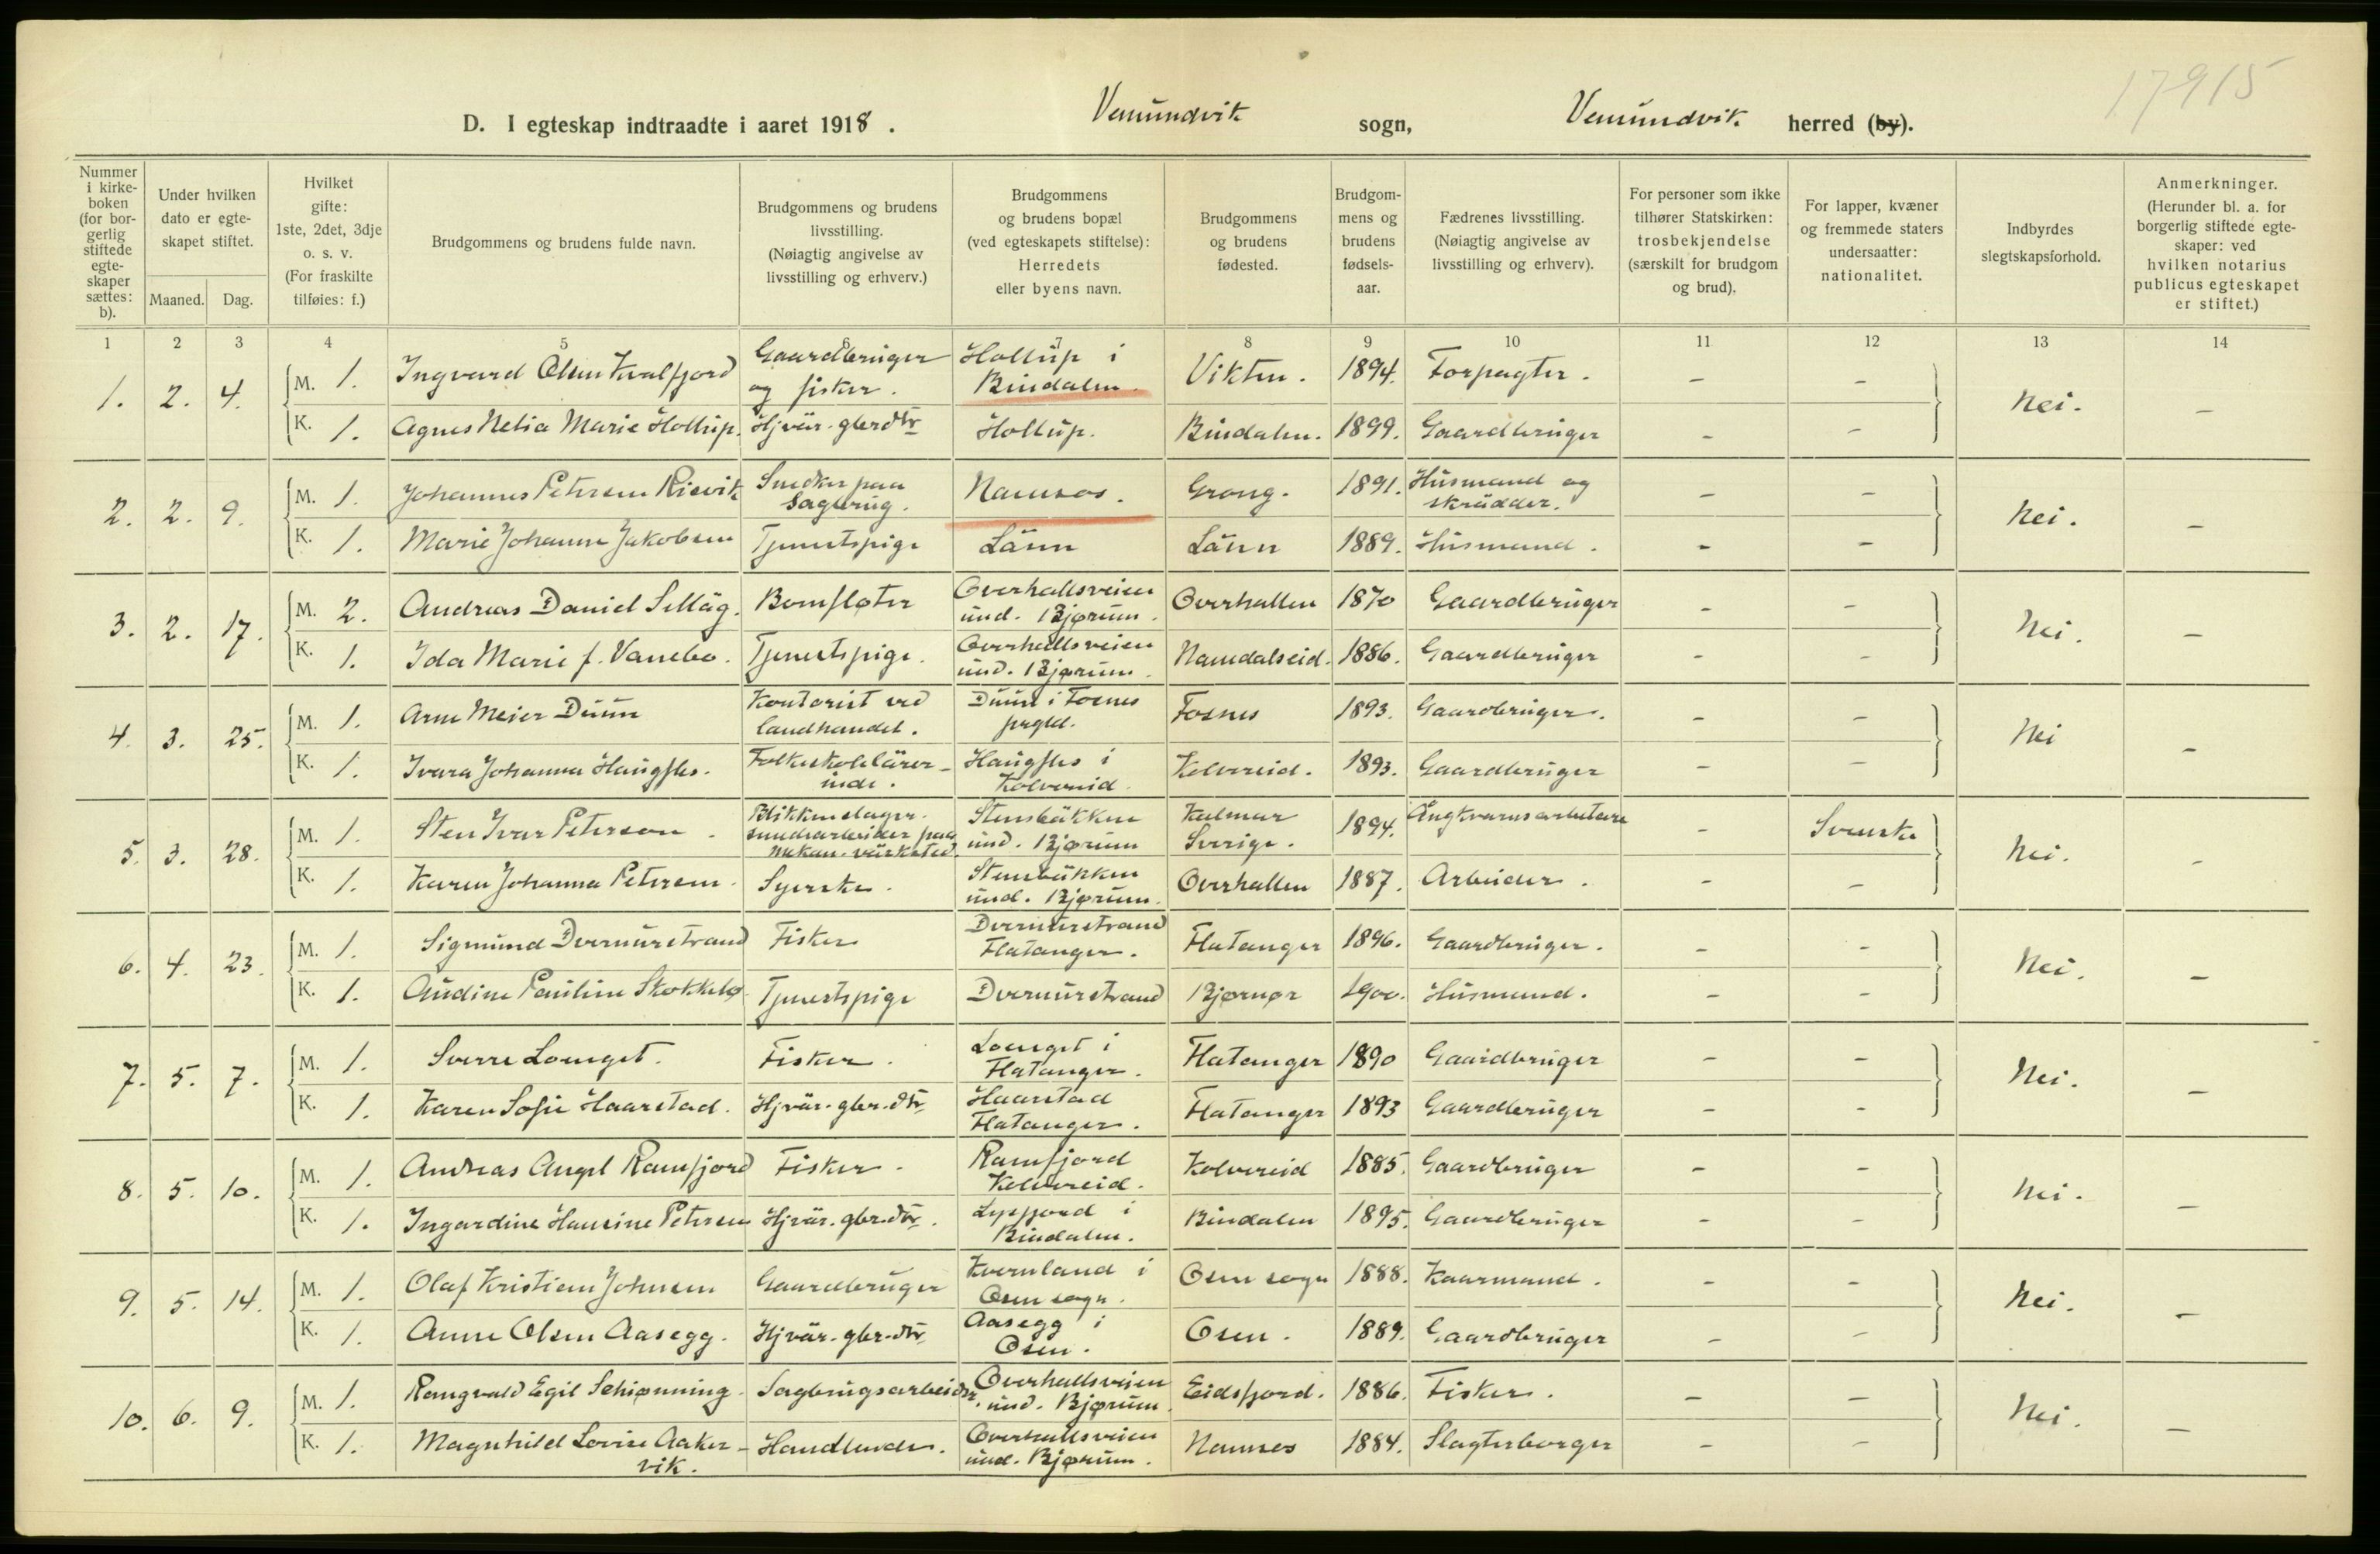 17915
D. I egteskap indtraadte i aaret 1918. Vemundvik sogn, Vemundvik herred (by).
Nummer i kirkeboken (for borgerlig stiftede egteskaper sættes: b).
Under hvilken dato er egteskapet stiftet.
Maaned. Dag.
Hvilket gifte: 1ste, 2det, 3dje o. s. v. (For fraskilte tilføies: f.)
Brudgommens og brudens fulde navn.
Brudgommens og brudens livsstilling. (Nøiagtig angivelse av livsstilling og erhverv.)
Brudgommens og brudens bopæl (ved egteskapets stiftelse): Herredets eller byens navn.
Brudgommens og brudens fødested.
Brudgommens og brudens fødselsaar.
Fædrenes livsstilling. (Nøiagtig angivelse av livsstilling og erhverv).
For personer som ikke tilhører Statskirken: trosbekjendelse (særskilt for brudgom og brud).
For lapper, kvæner og fremmede staters undersaatter: nationalitet.
Indbyrdes slegtskapsforhold.
Anmerkninger. (Herunder bl. a. for borgerlig stiftede egteskaper: ved hvilken notarius publicus egteskapet er stiftet.)
1 2 3 4 5 6 7 8 9 10 11 12 13 14
1. 2. 4. M. 1. Ingvard Olsen Kvalfjord Gaardbruger og fisker. Hollup i Bindalen. Vikten. 1894. Forpagter. - - Nei. -
K. 1. Agnes Netia Marie Hollup. Hjvær. gbr dtr Hollup. Bindalen. 1899. Gaardbruger - -
2. 2. 9. M. 1. Johannes Petersen Risvik Snedker paa Sagbrug. Namsos. Grong. 1891. Husmand og skrædder. - - Nei. -
K. 1. Marie Johanne Jakobsen Tjenestpige Lånn Lånn 1889. Husmand. - -
3. 2. 17. M. 2. Andreas Daniel Selläg. Bomfløter Overhallsveien und. Bjørum. Overhallen 1870 Gaardbruger - - Nei. -
K. 1. Ida Marie f. Vannebo. Tjenestpige. Overhallsveien und. Bjørum. Namdalseid. 1886. Gaardbruger - -
4. 3. 25. M. 1. Arne Meier Duun Kontorist ved landhandel. Duun i Fosnes prgld. Fosnes 1893. Gaardbruger. - - Nei -
K. 1. Ivara Johanna Haugfles. Folkeskolelärerinde. Haugfles i Kolvereid Kolvereid. 1893. Gaardbruger - -
5. 3. 28. M. 1. Sten Ivar Peterson. Blikkenslager. smedarbeider paa mekan. värksted. Stensbäkken und. Bjørum Kalmar Sverige. 1894. Ångkvarnsarbetare - Svensk Nei. -
K. 1. Karen Johanna Petersen. Syerske. Stensbäkken und. Bjørum. Overhallen 1887. Arbeider. - -
6. 4. 23. M. 1. Sigmund Dversurstrand Fisker Dversurstrand Flatanger. Flatanger 1896. Gaardbruger. - - Nei. -
K. 1. Audine Pauline Stokkelø Tjenestpige Dversurstrand Bjørnør 1900. Husmand. - -
7. 5. 7. M. 1. Sverre Lounget. Fisker. Lounget i Flatanger. Flatanger 1890 Gaardbruger - - Nei. -
K. 1. Karen Sofie Haarstad. Hjvär. gbr. dtr Haarstad Flatanger. Flatanger 1893 Gaardbruger - -
8. 5. 10. M. 1. Andreas Angel Ramfjord Fisker. Ramfjord Kolvereid. Kolvereid 1885. Gaardbruger - - Nei. -
K. 1. Ingardine Hansine Petersen Hjvär. gbr. dtr. Lysfjord i Bindalen. Bindalen 1895. Gaardbruger - -
9. 5. 14. M. 1. Olaf Kristian Johnsen Gaardbruger Kvernland i Osen sogn. Osen sogn 1888. Kaarmand. - - Nei. -
K. 1. Anne Olsen Aasegg. Hjvär. gbr. dtr Aasegg i Osen. Osen. 1889. Gaardbruger - -
10. 6. 9. M. 1. Rangvald Egil Schiønning. Sagbrugsarbeider. Overhallsveien und. Bjørum. Eidsfjord. 1886. Fisker. - - Nei. -
K. 1. Magnhild Lovise Aakervik. Handlende. Overhallsveien und. Bjørum. Namsos 1884. Slagterborger - -